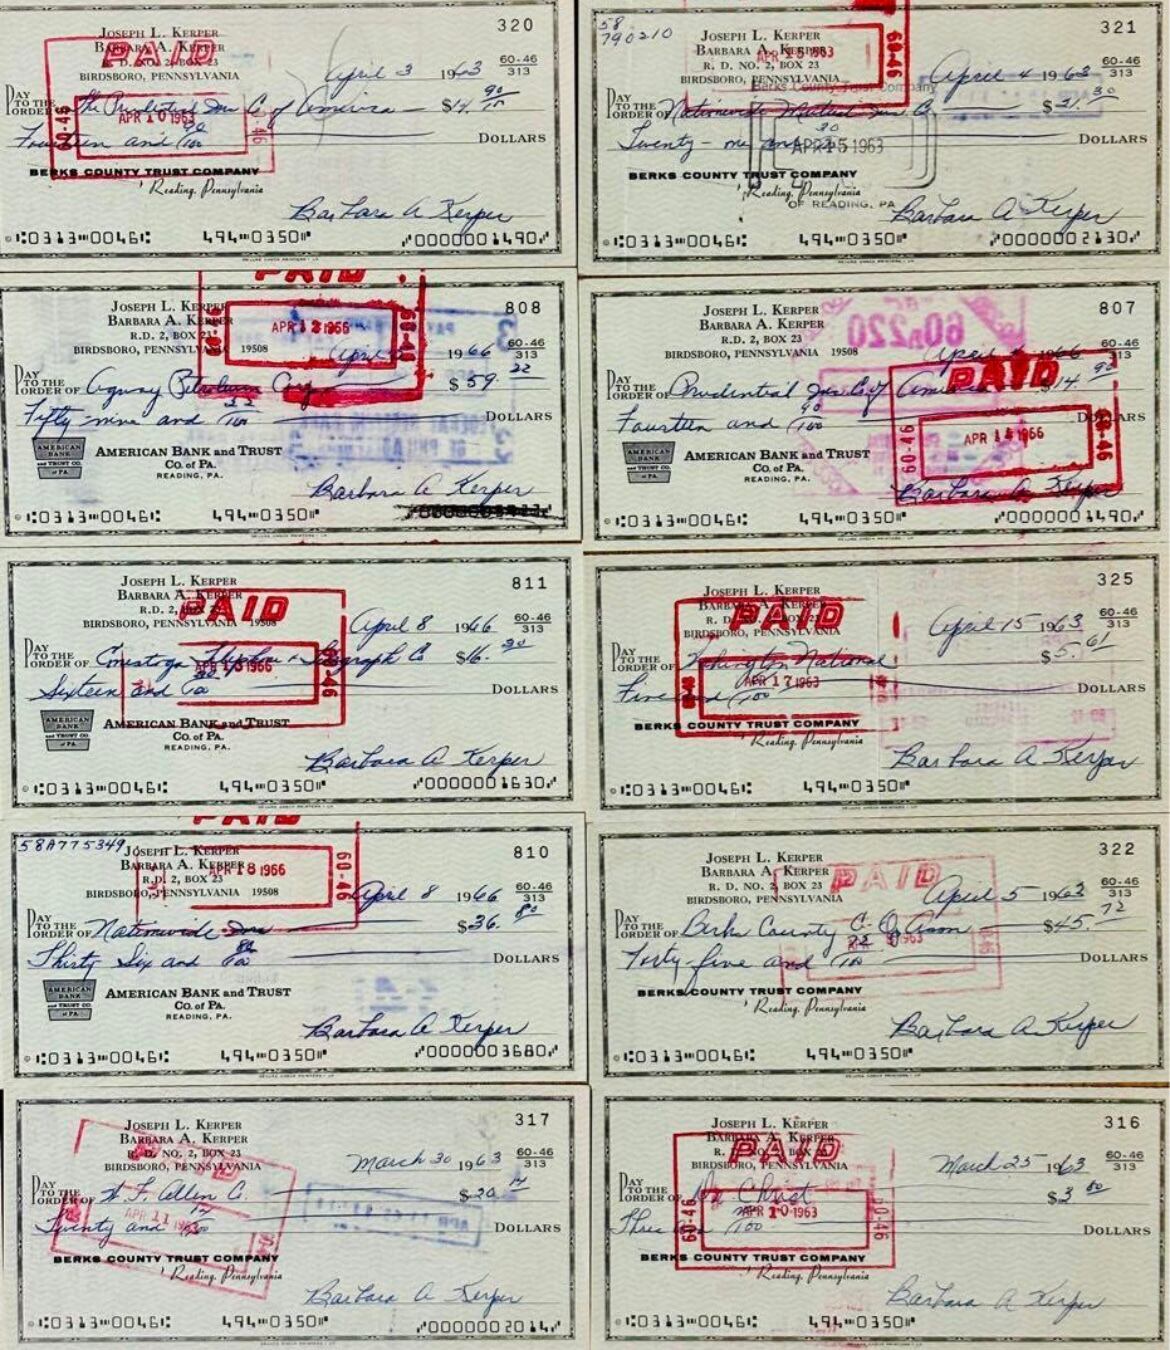 320
JOSEPH L. KERPER
BARBARA A. KERPER
R. D. NO. 2, BOX 23
BIRDSBORO, PENNSYLVANIA
PAID
April 3 1963 60-46/313
PAY TO THE ORDER OF The Prudential Ins C. of America $14. 90/100
APR 10 1963
60-46
Fourteen and 90/100 DOLLARS
BERKS COUNTY TRUST COMPANY
Reading, Pennsylvania
Barbara A Kerper
⑆0313⑉0046⑆ 494⑉0350⑈ ⑇0000001490⑇
58
790210
321
JOSEPH L. KERPER
BARBARA A. KERPER
R. D. NO. 2, BOX 23
BIRDSBORO, PENNSYLVANIA
APR 15 1963
60-46
Berks County Trust Company
April 4 1963 60-46/313
PAY TO THE ORDER OF Nationwide Mutual Ins. C. $21. 30
Twenty-one and 30 DOLLARS
APR 15 1963
BERKS COUNTY TRUST COMPANY
Reading, Pennsylvania
OF READING, PA
Barbara A Kerper
⑆0313⑉0046⑆ 494⑉0350⑈ ⑇0000002130⑇
PAID
808
JOSEPH L. KERPER
BARBARA A. KERPER
R.D. 2, BOX 23
BIRDSBORO, PENNSYLVANIA 19508
APR 12 1966
60-46
April 1966 60-46/313
PAY TO THE ORDER OF Agway Petroleum Corp $59. 22
Fifty-nine and 22/100 DOLLARS
AMERICAN BANK and TRUST CO. of PA.
AMERICAN BANK AND TRUST
CO. OF PA.
READING, PA.
Barbara A Kerper
⑆0313⑉0046⑆ 494⑉0350⑈
807
JOSEPH L. KERPER
BARBARA A. KERPER
R.D. 2, BOX 23
BIRDSBORO, PENNSYLVANIA 19508
April 1966 60-46/313
PAID
PAY TO THE ORDER OF Prudential Ins. C. of America $14. 90
Fourteen and 90/100 DOLLARS
APR 14 1966
60-46
AMERICAN BANK and TRUST CO. of PA.
AMERICAN BANK AND TRUST
CO. OF PA.
READING, PA.
Barbara A. Kerper
⑆0313⑉0046⑆ 494⑉0350⑈ ⑇0000001490⑇
811
JOSEPH L. KERPER
BARBARA A. KERPER
R.D. 2, BOX 23
BIRDSBORO, PENNSYLVANIA 19508
PAID
April 8 1966 60-46/313
PAY TO THE ORDER OF Conestoga Telephone & Telegraph Co $16. 30
60-46
Sixteen and 30/100 DOLLARS
AMERICAN BANK and TRUST CO. of PA.
AMERICAN BANK AND TRUST
CO. OF PA.
READING, PA.
Barbara A Kerper
⑆0313⑉0046⑆ 494⑉0350⑈ ⑇0000001630⑇
325
JOSEPH L. KERPER
BARBARA A. KERPER
R. D. NO. 2, BOX 23
BIRDSBORO, PENNSYLVANIA
PAID
April 15 1963 60-46/313
PAY TO THE ORDER OF Washington National $5. 61
APR 17 1963
60-46
Five and /100 DOLLARS
BERKS COUNTY TRUST COMPANY
Reading, Pennsylvania
Barbara A Kerper
⑆0313⑉0046⑆ 494⑉0350⑈
PAID
58A775349
810
JOSEPH L. KERPER
BARBARA A. KERPER
R.D. 2, BOX 23
BIRDSBORO, PENNSYLVANIA 19508
APR 18 1966
60-46
April 8 1966 60-46/313
PAY TO THE ORDER OF Nationwide Ins $36. 80
Thirty Six and 80/100 DOLLARS
AMERICAN BANK and TRUST CO. of PA.
AMERICAN BANK AND TRUST
CO. OF PA.
READING, PA.
Barbara A Kerper
⑆0313⑉0046⑆ 494⑉0350⑈ ⑇0000003680⑇
322
JOSEPH L. KERPER
BARBARA A. KERPER
R. D. NO. 2, BOX 23
BIRDSBORO, PENNSYLVANIA
PAID
April 5 1963 60-46/313
PAY TO THE ORDER OF Berks County $45. 72
Forty-five and 72/100 DOLLARS
BERKS COUNTY TRUST COMPANY
Reading, Pennsylvania
Barbara A Kerper
⑆0313⑉0046⑆ 494⑉0350⑈
317
JOSEPH L. KERPER
BARBARA A. KERPER
R. D. NO. 2, BOX 23
BIRDSBORO, PENNSYLVANIA
March 30 1963 60-46/313
PAY TO THE ORDER OF Allen C. $20 14
APR 11
Twenty and 14/100 DOLLARS
BERKS COUNTY TRUST COMPANY
Reading, Pennsylvania
Barbara A Kerper
⑆0313⑉0046⑆ 494⑉0350⑈ ⑇0000002014⑇
316
JOSEPH L. KERPER
BARBARA A. KERPER
R. D. NO. 2, BOX 23
BIRDSBORO, PENNSYLVANIA
PAID
March 25 1963 60-46/313
PAY TO THE ORDER OF Dr. Christ $3 00
APR 10 1963
60-46
Three and /100 DOLLARS
BERKS COUNTY TRUST COMPANY
Reading, Pennsylvania
Barbara A Kerper
⑆0313⑉0046⑆ 494⑉0350⑈